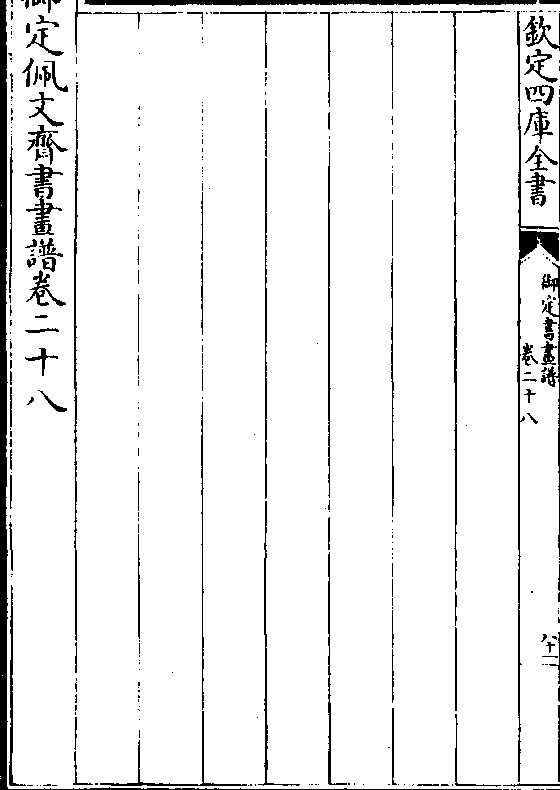 欽定四庫全書
御定書畫譜
卷二十八
八十二
御定佩文齋書畫譜卷二十八